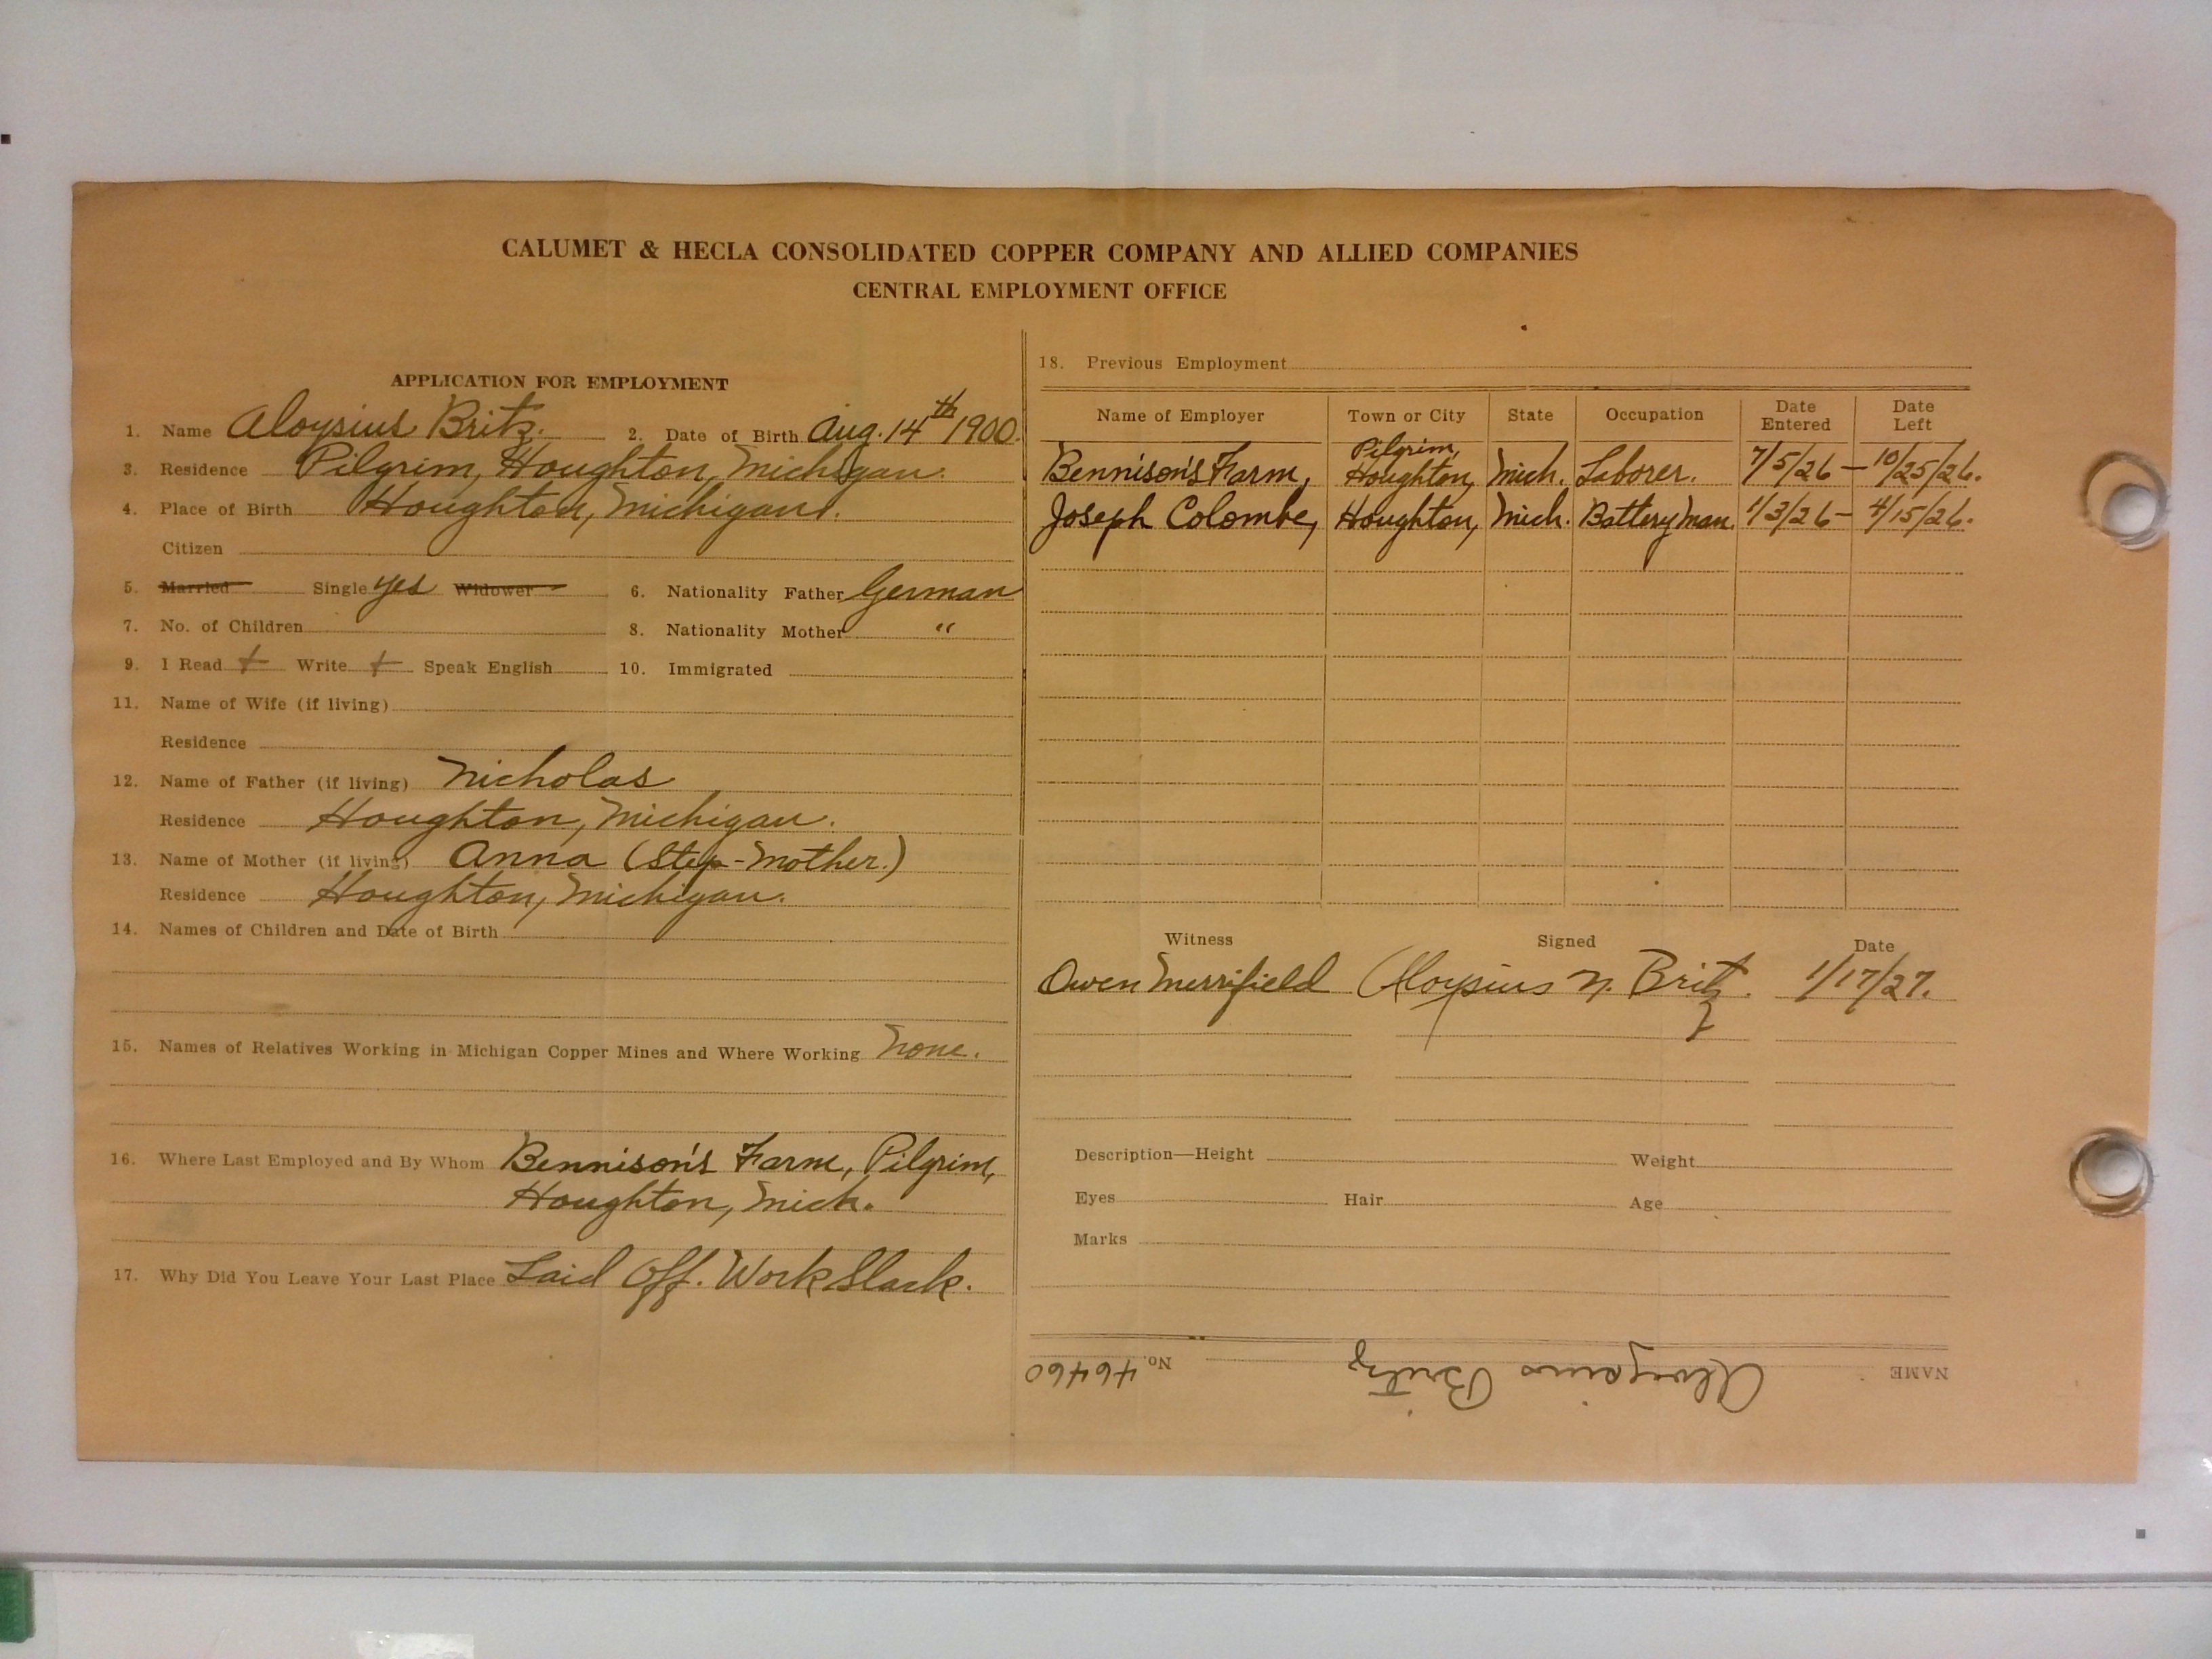 CALUMET & HECLA CONSOLIDATED COPPER COMPANY AND ALLIED COMPANIES
CENTRAL EMPLOYMENT OFFICE
APPLICATION FOR EMPLOYMENT
1. Name Aloysius Britz. 2. Date of Birth Aug. 14th 1900.
3. Residence Pilgrim, Houghton, Michigan.
4. Place of Birth Houghton, Michigan.
Citizen
5. Married Single yes Widower 6. Nationality Father German
7. No. of Children 8. Nationality Mother "
9. I Read + Write + Speak English 10. Immigrated
11. Name of Wife (if living)
Residence
12. Name of Father (if living) Nicholas
Residence Houghton, Michigan.
13. Name of Mother (if living) Anna (Step-Mother.)
Residence Houghton, Michigan.
14. Names of Children and Date of Birth
15. Names of Relatives Working in Michigan Copper Mines and Where Working None.
16. Where Last Employed and By Whom Bennison's Farm, Pilgrim,
Houghton, Mich.
17. Why Did You Leave Your Last Place Laid Off. Work Slack.
18. Previous Employment
Name of Employer Town or City State Occupation Date Entered Date Left
Bennison's Farm, Pilgrim, Houghton, Mich. Laborer. 7/5/26 - 10/25/26.
Joseph Colombe, Houghton, Mich. Battery Man. 1/3/26 - 4/15/26.
Witness Signed Date
Owen Merrifield Aloysius N. Britz. 1/17/27.
Description—Height Weight
Eyes Hair Age
Marks
NAME Aloysius Britz No. 46460